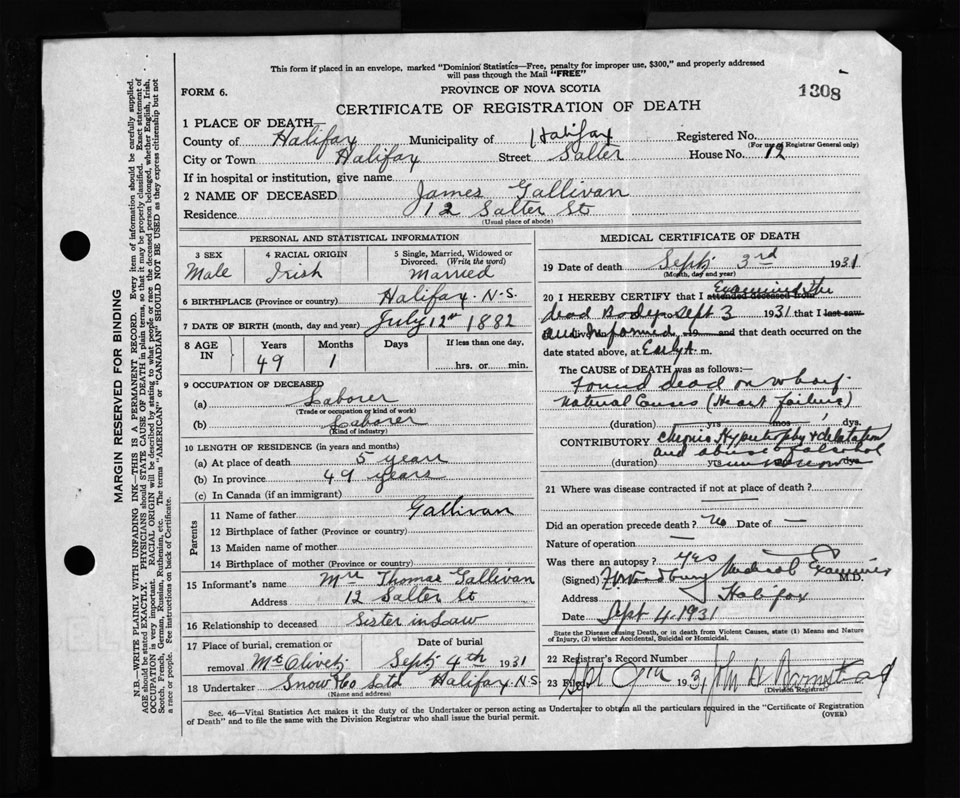 This form if placed in an envelope, marked "Dominion Statistics—Free, penalty for improper use, $300," and properly addressed
will pass through the Mail "FREE"
FORM 6.
PROVINCE OF NOVA SCOTIA
1308
CERTIFICATE OF REGISTRATION OF DEATH
1 PLACE OF DEATH
County of Halifax Municipality of Halifax Registered No.
(For use of Registrar General only)
City or Town Halifax Street Salter House No. 12
If in hospital or institution, give name
2 NAME OF DECEASED James Gallivan
Residence 12 Salter St
(Usual place of abode)
PERSONAL AND STATISTICAL INFORMATION
3 SEX 4 RACIAL ORIGIN 5 Single, Married, Widowed or
Divorced. (Write the word)
Male Irish Married
6 BIRTHPLACE (Province or country) Halifax N.S.
7 DATE OF BIRTH (month, day and year) July 12th 1882
8 AGE IN Years Months Days If less than one day.
49 1 hrs. or min.
9 OCCUPATION OF DECEASED
(a) Laborer
(Trade or occupation or kind of work)
(b) Laborer
(Kind of industry)
10 LENGTH OF RESIDENCE (in years and months)
(a) At place of death 5 years
(b) In province 49 years
(c) In Canada (if an immigrant)
Parents
11 Name of father Gallivan
12 Birthplace of father (Province or country)
13 Maiden name of mother
14 Birthplace of mother (Province or country)
15 Informant's name Mrs Thomas Gallivan
Address 12 Salter St
16 Relationship to deceased Sister in Law
17 Place of burial, cremation or Date of burial
removal Mt Olivet Sept 4th 1931
18 Undertaker Snow & Co Ltd Halifax N.S
(Name and address)
MEDICAL CERTIFICATE OF DEATH
19 Date of death Sept 3rd 1931
(Month, day and year)
20 I HEREBY CERTIFY that I attended deceased from Examined the
dead Body Sept 3 1931 that I last saw
and Informed 19 and that death occurred on the
date stated above, at Early A. m.
The CAUSE of DEATH was as follows:—
Found dead on wharf
Natural Causes (Heart failure)
(duration) yrs. mos. dys.
CONTRIBUTORY Chronic Hypertrophy & dilatation
and abuse of alcohol
(duration)
21 Where was disease contracted if not at place of death?
Did an operation precede death? No Date of —
Nature of operation —
Was there an autopsy? Yes
(Signed) Woodbury Medical Examiner M.D.
Address Halifax
Date Sept 4. 1931
State the Disease causing Death, or in death from Violent Causes, state (1) Means and Nature
of Injury, (2) whether Accidental, Suicidal or Homicidal.
22 Registrar's Record Number
23 Filed Sept 9th 1931 John
(Division Registrar)
Sec. 46—Vital Statistics Act makes it the duty of the Undertaker or person acting as Undertaker to obtain all the particulars required in the "Certificate of Registration
of Death" and to file the same with the Division Registrar who shall issue the burial permit.
(OVER)
MARGIN RESERVED FOR BINDING
N.B.—WRITE PLAINLY WITH UNFADING INK—THIS IS A PERMANENT RECORD. Every item of information should be carefully supplied.
AGE should be stated EXACTLY. PHYSICIANS should STATE CAUSE OF DEATH in plain terms, so that it may be properly classified. Exact statement of
OCCUPATION is very important. RACIAL ORIGIN will be described by stating to what people or race the deceased person belonged, whether English, Irish,
Scotch, French, German, Russian, Ruthenian, etc. The terms "AMERICAN" or "CANADIAN" SHOULD NOT BE USED as they express citizenship but not
a race or people. See instructions on back of Certificate.